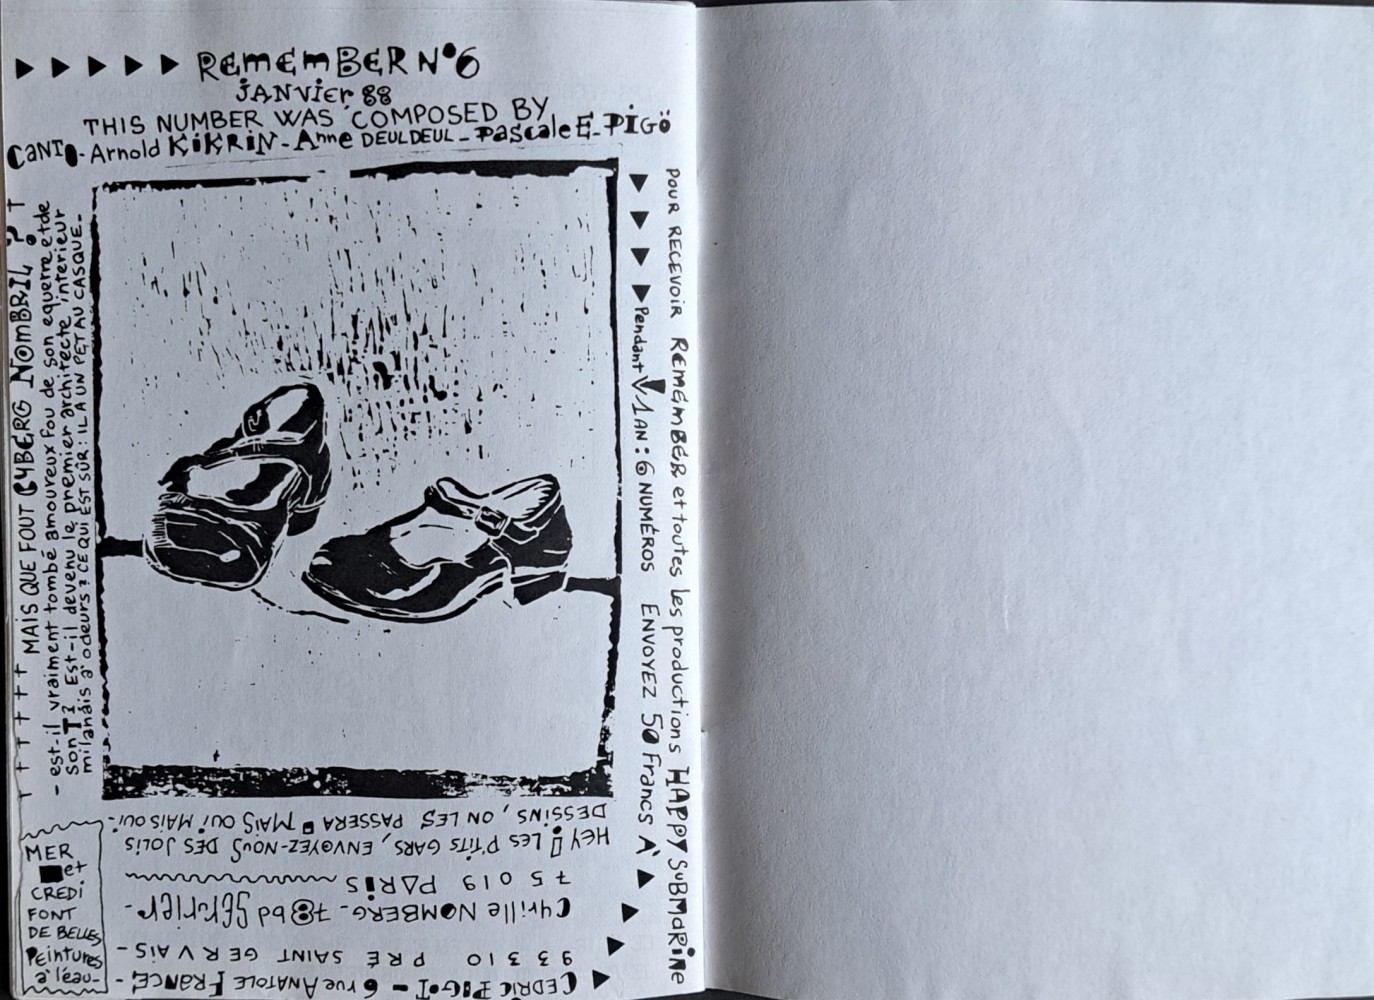 REMEMBER N°6
JANVIER 88
THIS NUMBER WAS COMPOSED BY
CANTO - Arnold KiKRiN - Anne DEULDEUL - Pascale E - PiGö
POUR RECEVOIR REMEMBER et toutes les productions HAPPY SUBMARINE
Pendant 1 AN : 6 NUMÉROS ENVOYEZ 50 Francs À
CEDRIC PIGOT - 6 rue ANATOLE FRANCE,
93310 PRÉ SAINT GERVAIS -
Cyrille NOMBERG - 78 bd Sérurier -
75019 PARIS
HEY ! LES P'TITS GARS, ENVOYEZ-NOUS DES JOLIS
DESSINS, ON LES PASSERA. MAIS OUI MAIS OUI.
MAIS QUE FOUT CYBERG NOMBRIL ?
- est-il vraiment tombé amoureux fou de son equerre et de
son T ? Est-il devenu le premier architecte intérieur
milanais à odeurs ? CE QUI EST SÛR : IL A UN PET AU CASQUE.
MER
et
CREDI
FONT
DE BELLES
Peintures
à l'eau -